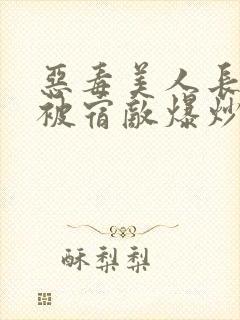 惡毒美人長
被宿敵爆炒
酥梨梨